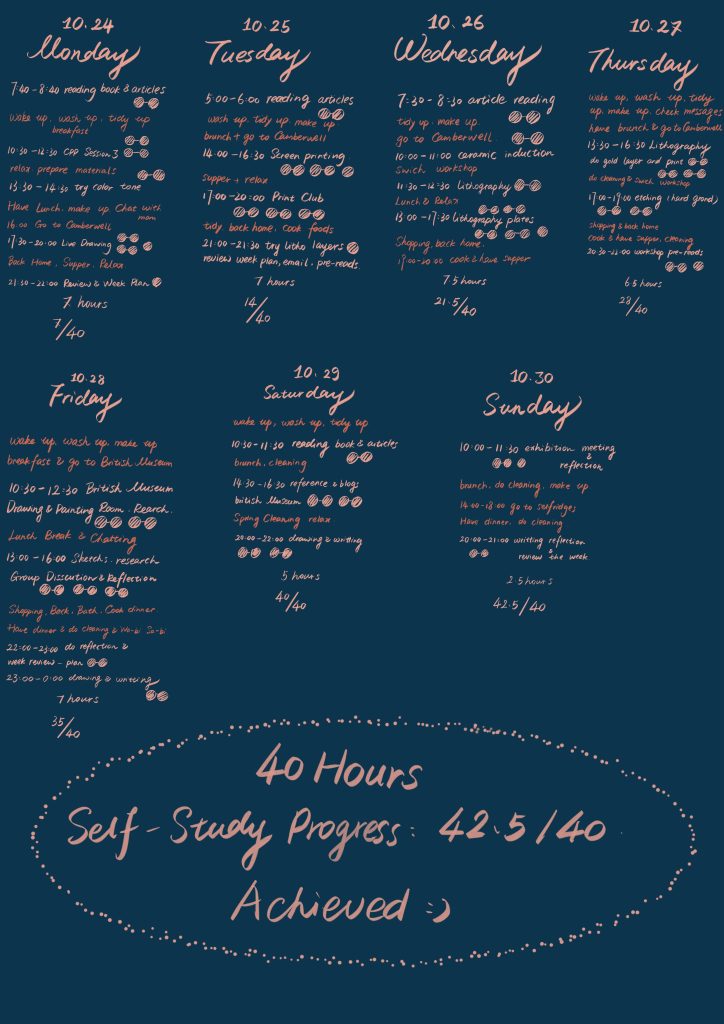 10.24
Monday
7:40-8:40 reading book & articles
wake up, wash up, tidy up
breakfast
10:30-12:30 CPP Session 3
relax prepare materials
13:30-14:30 try color tone
Have Lunch. make up. Chat with
mom
16:00 Go to Camberwell
17:30-20:00 Live Drawing
Back Home. Supper. Relax
21:30-22:00 Review & Week Plan
7 hours
7/40
10.25
Tuesday
5:00-6:00 reading articles
wash up. tidy up. make up
brunch + go to Camberwell
14:00-16:30 Screen printing
supper + relax
17:00-20:00 Print Club
tidy. back home. Cook foods
21:00-21:30 try litho layers
review week plan, email. pre-reads.
7 hours
14/40
10.26
Wednesday
7:30-8:30 article reading
tidy up. make up.
go to Camberwell.
10:00-11:00 ceramic induction
Swich workshop
11:30-12:30 lithography
Lunch & Relax
13:00-17:30 lithography plates
Shopping, back home.
19:00-20:00 cook & have supper
7.5 hours
21.5/40
10.27
Thursday
wake up, wash up, tidy
up. make up. check messages
home brunch & go to Camberwell
13:30-16:30 Lithography
do gold layer and print
do cleaning & swich workshop
17:00-19:00 etching (hard grond)
shopping & back home
Cook & have supper. cleaning
20:30-22:00 workshop pre-reads
6.5 hours
28/40
10.28
Friday
wake up. wash up. make up
breakfast & go to British Museum
10:30-12:30 British Museum
Drawing & Painting Room. Rearch.
Lunch Break & Chatting
13:00-16:00 Sketchs. research
Group Discution & Reflection
Shopping, Back. Bath. Cook dinner.
Have dinner & do cleaning & Wa-bi Sa-bi
22:00-23:00 do reflection &
week review - plan
23:00-0:00 drawing & writting
7 hours
35/40
10.29
Saturday
wake up, wash up. tidy up
10:30-11:30 reading book & articles
brunch. cleaning
14:30-16:30 reference & blogs
british Muszum
Spring Cleaning relax
20:00-22:00 drawing & writting
5 hours
40/40
10.30
Sunday
10:00-11:30 exhibition meeting
&
reflection
brunch. do cleaning. make up.
14:00-18:00 go to selfridges
Have dinner. do cleaning
20:00-21:00 writting reflection
&
review the week
2.5 hours
42.5/40
40 Hours
Self-Study Progress: 42.5/40
Achieved :)